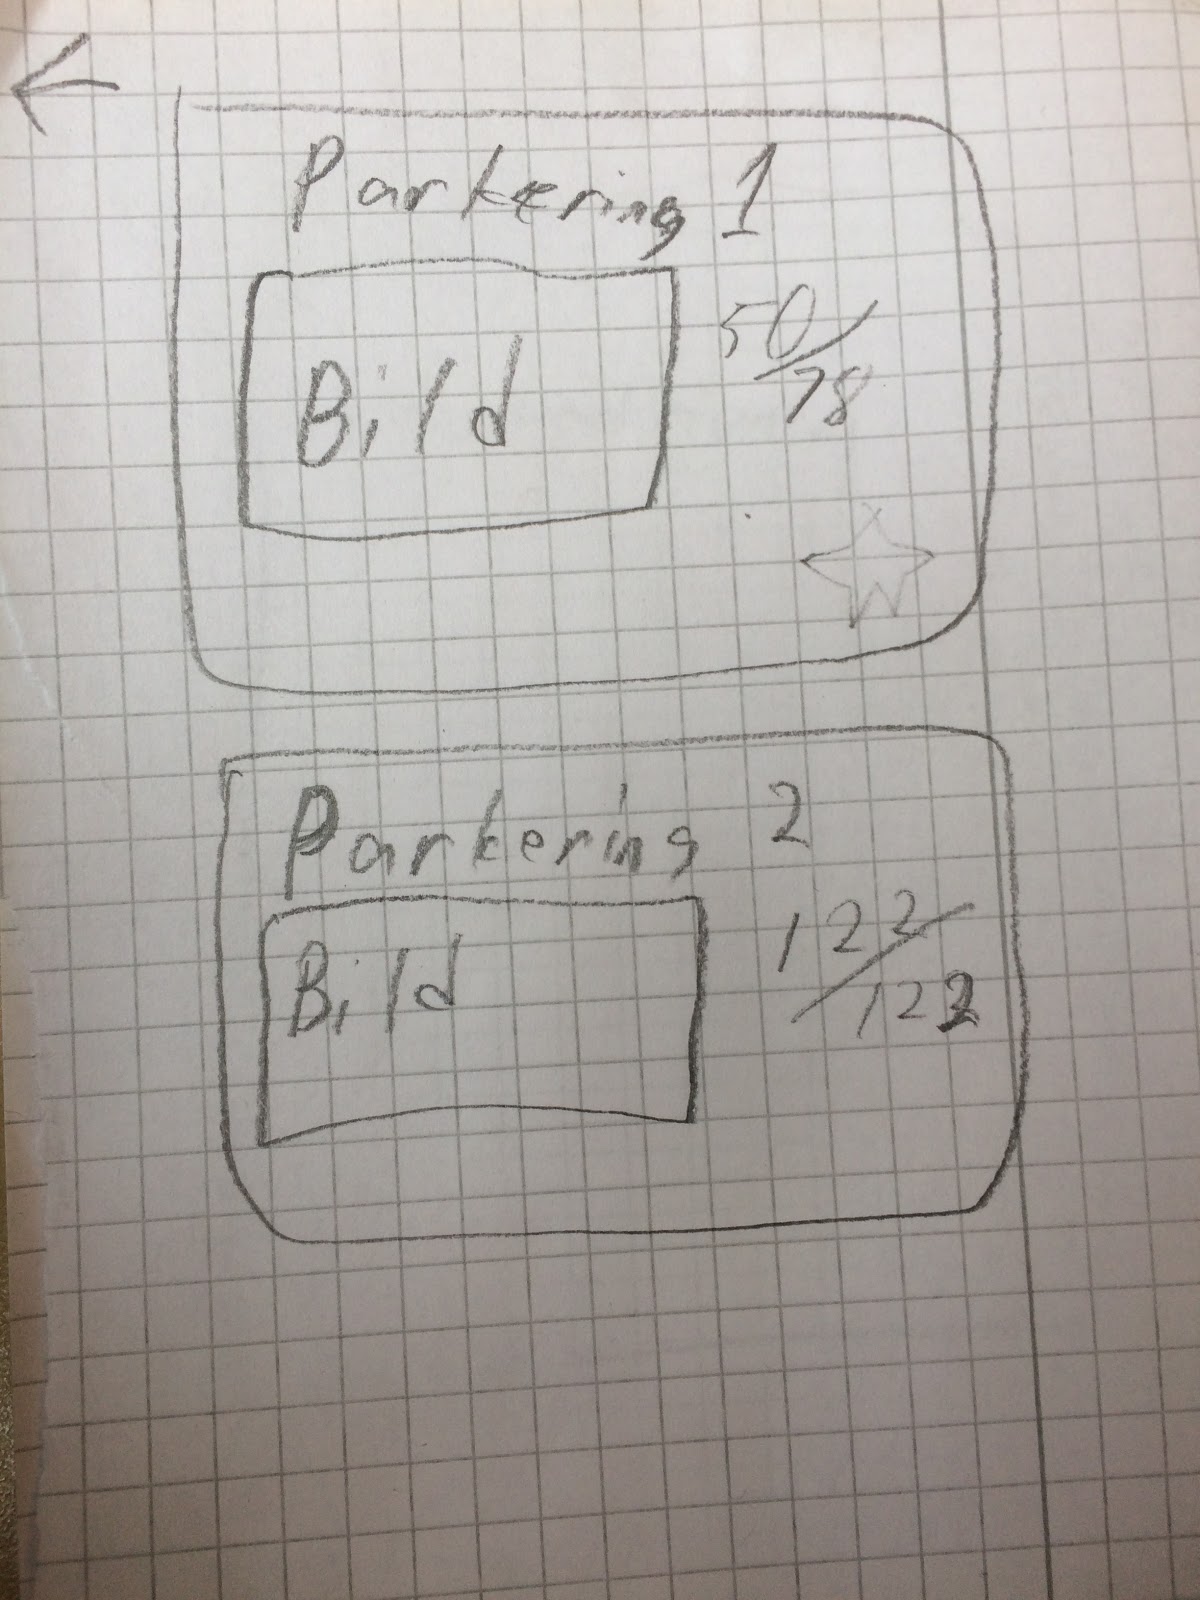 Parkering 1
Bild
50/78
Parkering 2
Bild
122/122